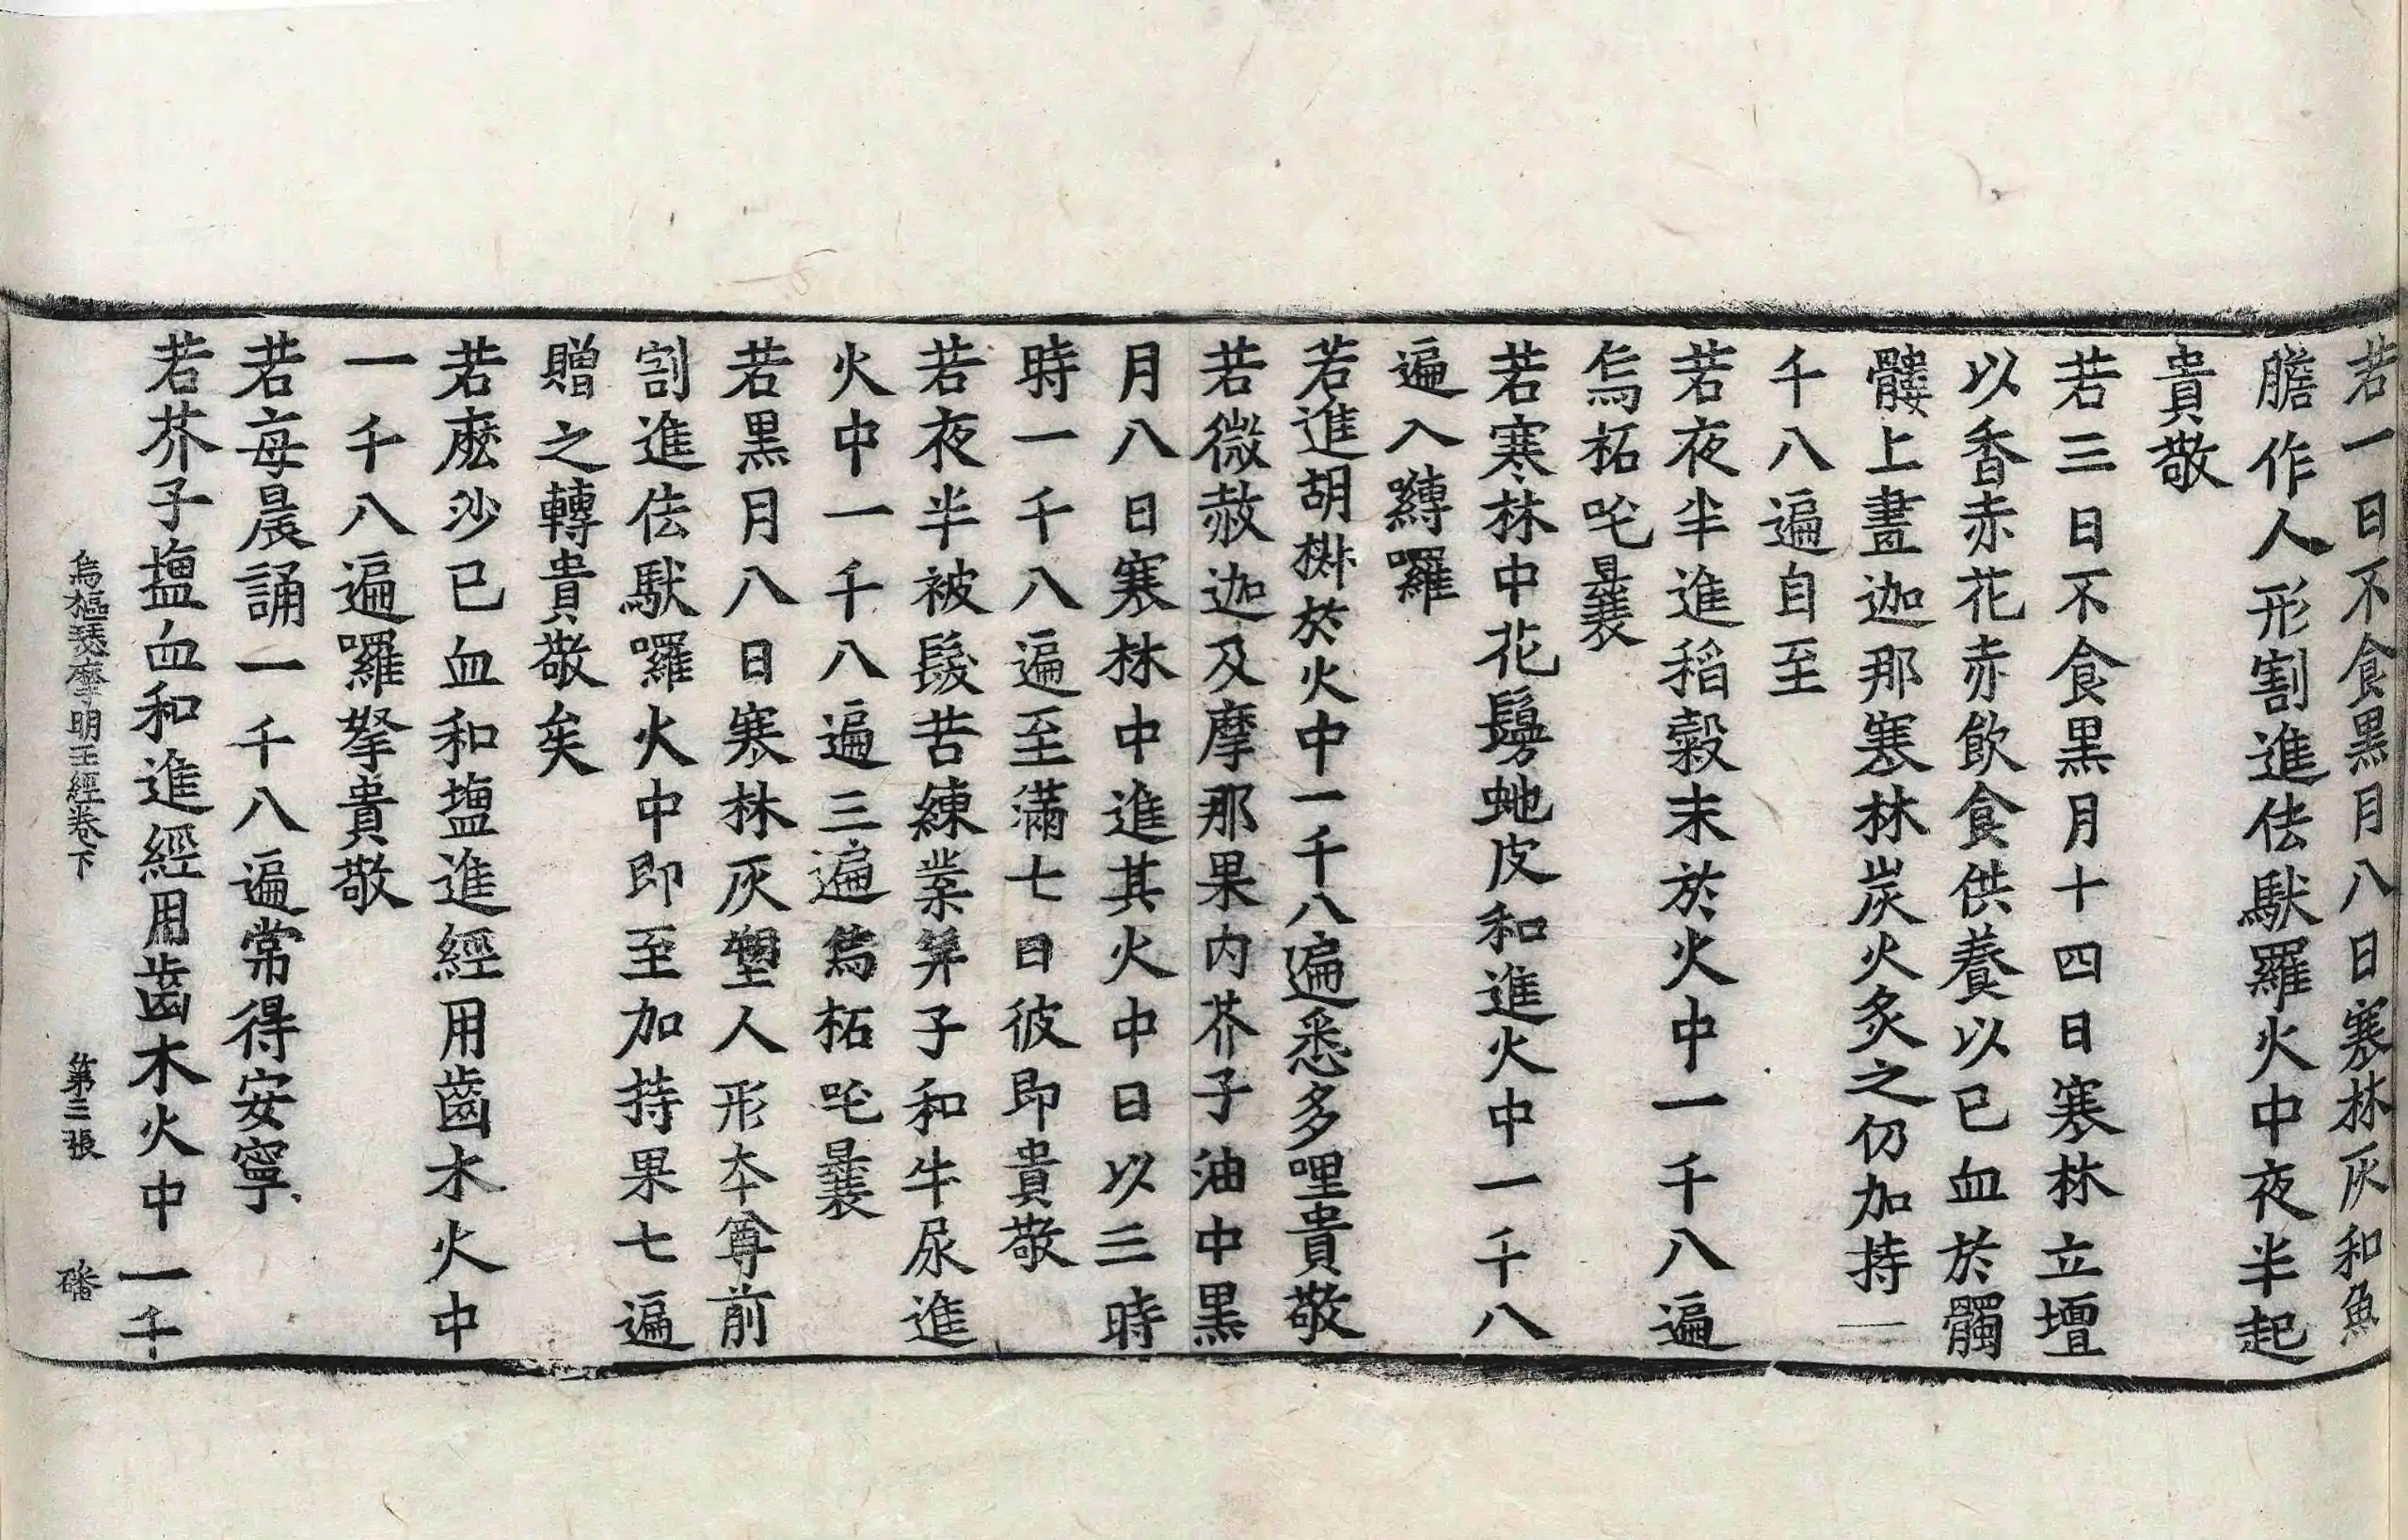 若一日不食黒月八日寒林灰和魚
膽作人形割進佉馱羅火中夜半起
貴敬
若三日不食黒月十四日寒林立壇
以香赤花赤飲食供養以已血於髑
髏上畫迦那寒林炭火炙之仍加持一
千八遍自至
若夜半進稻穀末於火中一千八遍
烏柘吒曩
若寒林中花鬘虵皮和進火中一千八
遍入嚩囉
若進胡㭊於火中一千八遍悉多哩貴敬
若微赦迦及摩那果内芥子油中黒
月八日寒林中進其火中日以三時
時一千八遍至滿七日彼即貴敬
若夜半被髮苦練葉笄子和牛尿進
火中一千八遍三遍烏柘吒曩
若黒月八日寒林灰塑人形本尊前
割進佉馱囉火中即至加持果七遍
贈之轉貴敬矣
若麽沙已血和塩進經用齒木火中
一千八遍囉拏貴敬
若每晨誦一千八遍常得安寧
若芥子塩血和進經用齒木火中一千
烏樞瑟摩明王經卷下 第三張 磻